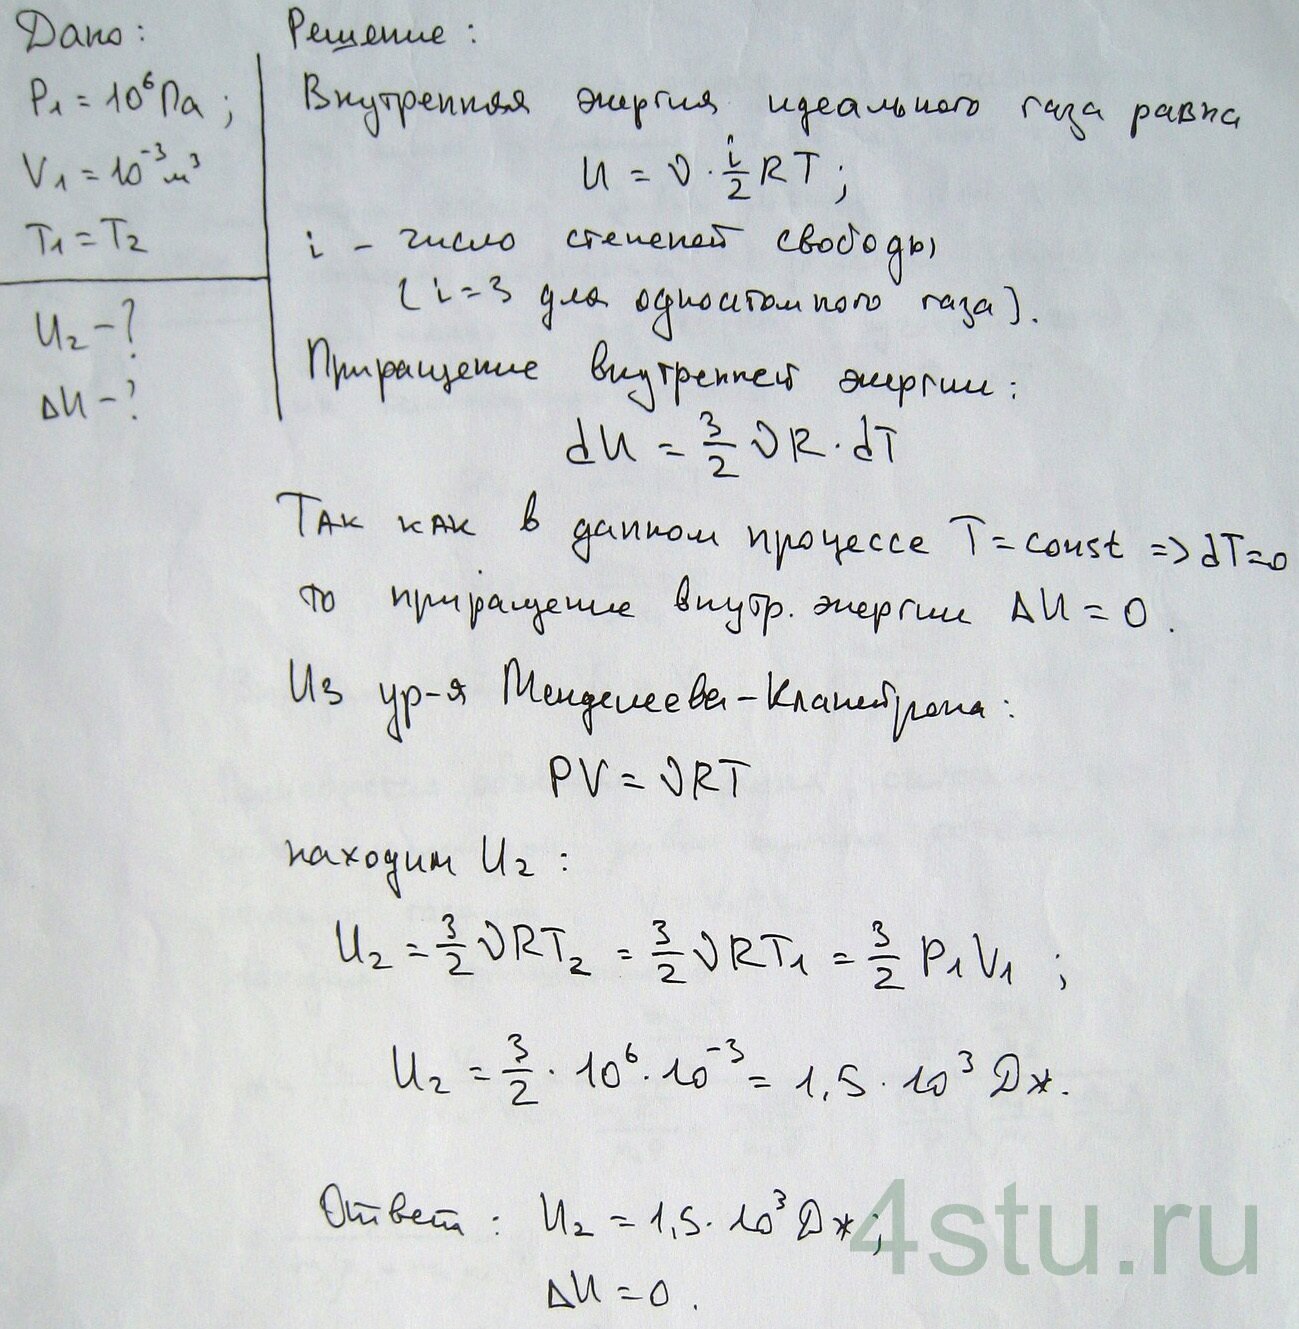 Дано:
P₁ = 10⁶ Па;
V₁ = 10⁻³ м³
T₁ = T₂
U₂ - ?
ΔU - ?
Решение:
Внутренняя энергия идеального газа равна
U = ν · i/2 RT;
i - число степеней свободы
(i = 3 для одноатомного газа).
Приращение внутренней энергии:
dU = 3/2 νR · dT
Так как в данном процессе T = const => dT = 0
то приращение внутр. энергии ΔU = 0.
Из ур-я Менделеева-Клапейрона:
PV = νRT
находим U₂:
U₂ = 3/2 νRT₂ = 3/2 νRT₁ = 3/2 P₁V₁;
U₂ = 3/2 · 10⁶ · 10⁻³ = 1,5 · 10³ Дж.
Ответ: U₂ = 1,5 · 10³ Дж;
ΔU = 0.
4stu.ru